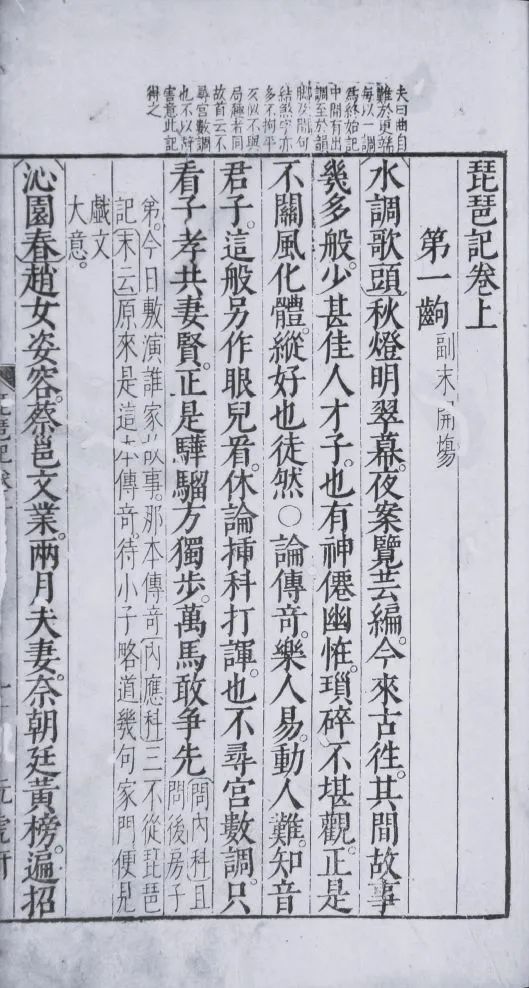 夫曰曲自
難於更端
每以一調
為終始記
中開有出
調至於韻
脚及間句
結煞字亦
多不拘平
仄似不與
局趣者同
故首云不
尋宮數調
也不以辭
害意此記
得之
琵琶記卷上
第一齣 副末開場
水調歌頭 秋燈明翠幕。夜案覽芸編。今來古徃。其間故事
幾多般。少甚佳人才子。也有神僊幽恠。瑣碎不堪觀。正是
不關風化體。縱好也徒然○論傳奇。樂人易。動人難。知音
君子。這般另作眼兒看。休論揷科打諢。也不尋宮數調。只
看子孝共妻賢。正是驊騮方獨步。萬馬敢爭先 問內科且
問後房子
弟。今日敷演誰家故事。那本傳奇 內應科 三不從琵琶
記 末云 原來是這本傳奇。待小子略道幾句家門便見
戲文
大意。
沁園春 趙女姿容。蔡邕文業。兩月夫妻。奈朝廷黃榜。遍招